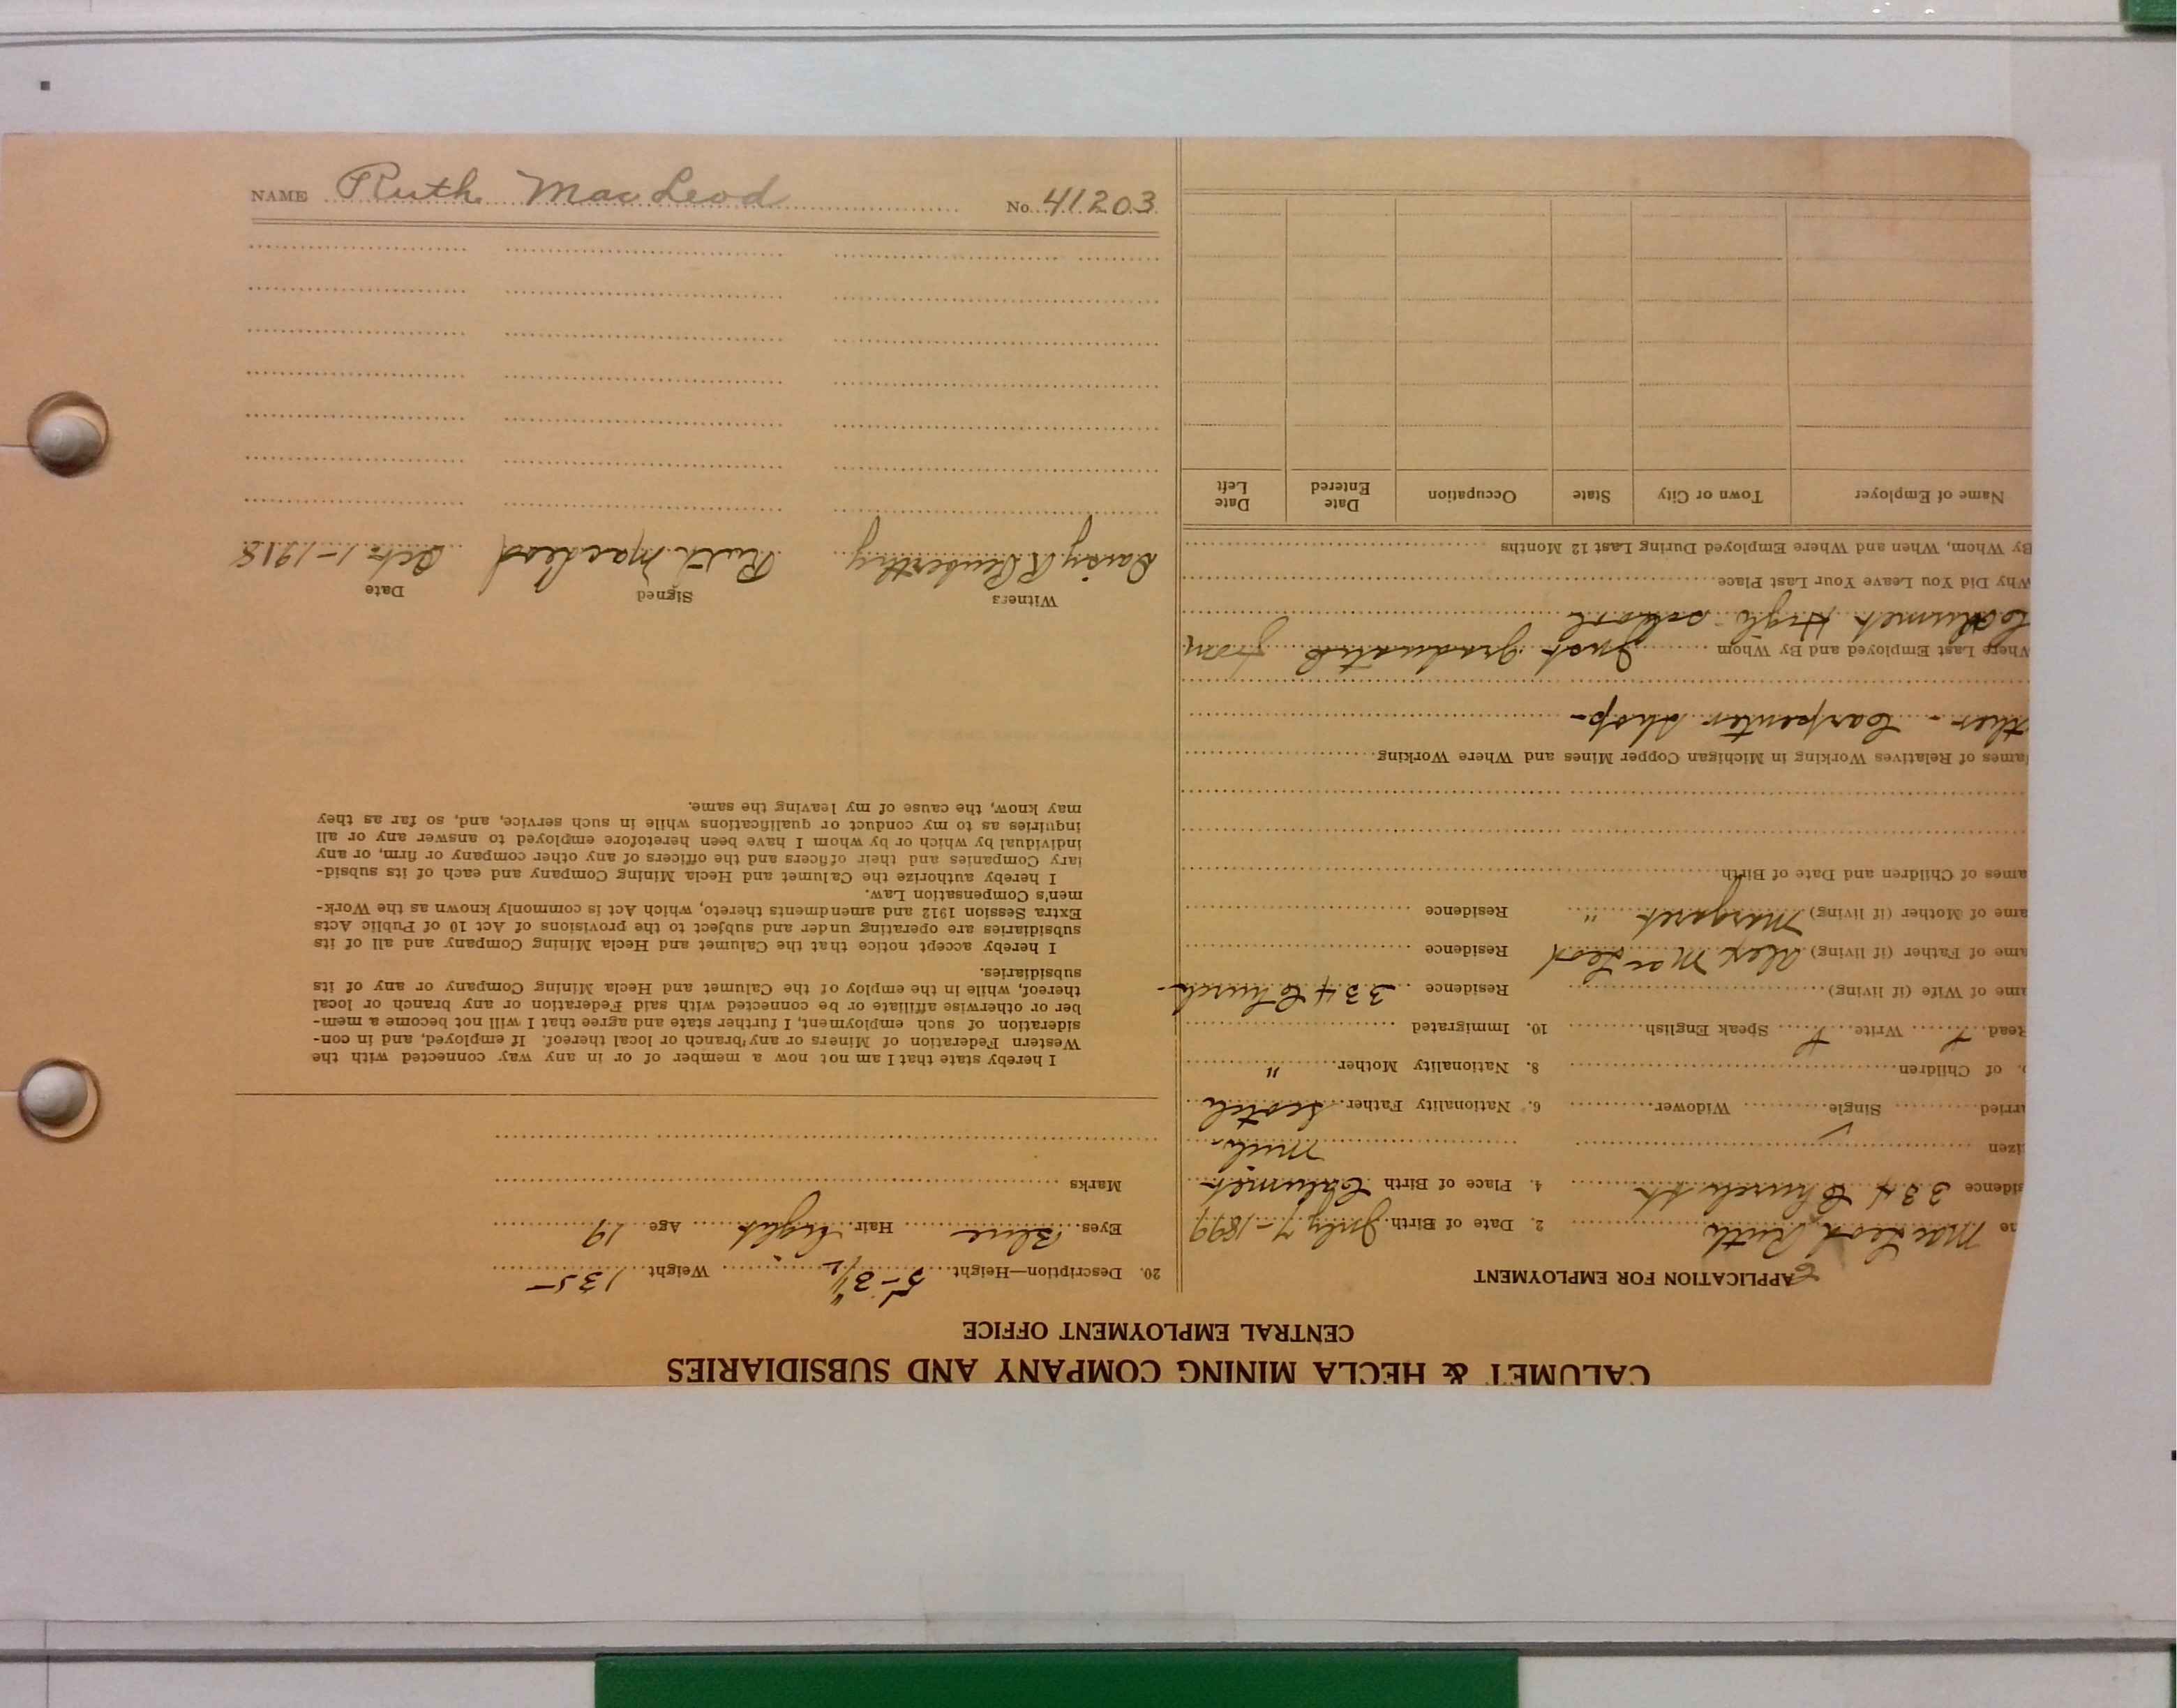 NAME Ruth MacLeod No. 41203
CALUMET & HECLA MINING COMPANY AND SUBSIDIARIES
CENTRAL EMPLOYMENT OFFICE
APPLICATION FOR EMPLOYMENT
me MacLeod, Ruth 2. Date of Birth July 7-1899
sidence 334 Church St 4. Place of Birth Calumet
izen Mich.
rried Single ✓ Widower 6. Nationality Father Scotch
o. of Children 8. Nationality Mother "
Read Write Speak English 10. Immigrated
ame of Wife (if living) Residence 334 Church
ame of Father (if living) Alex MacLeod Residence
ame of Mother (if living) Margaret " Residence
ames of Children and Date of Birth
ames of Relatives Working in Michigan Copper Mines and Where Working
ther - Carpenter Shop -
Where Last Employed and By Whom Just graduated from
Calumet High School
Why Did You Leave Your Last Place
By Whom, When and Where Employed During Last 12 Months
Name of Employer Town or City State Occupation Date Entered Date Left
20. Description—Height 5'-3½" Weight 135
Eyes Blue Hair Light Age 19
Marks
I hereby state that I am not now a member of or in any way connected with the
Western Federation of Miners or any branch or local thereof. If employed, and in con-
sideration of such employment, I further state and agree that I will not become a mem-
ber or otherwise affiliate or be connected with said Federation or any branch or local
thereof, while in the employ of the Calumet and Hecla Mining Company or any of its
subsidiaries.
I hereby accept notice that the Calumet and Hecla Mining Company and all of its
subsidiaries are operating under and subject to the provisions of Act 10 of Public Acts
Extra Session 1912 and amendments thereto, which Act is commonly known as the Work-
men's Compensation Law.
I hereby authorize the Calumet and Hecla Mining Company and each of its subsid-
iary Companies and their officers and the officers of any other company or firm, or any
individual by which or by whom I have been heretofore employed to answer any or all
inquiries as to my conduct or qualifications while in such service, and, so far as they
may know, the cause of my leaving the same.
Witness Signed Date
Daisy R. Ruth MacLeod Oct. 1-1918